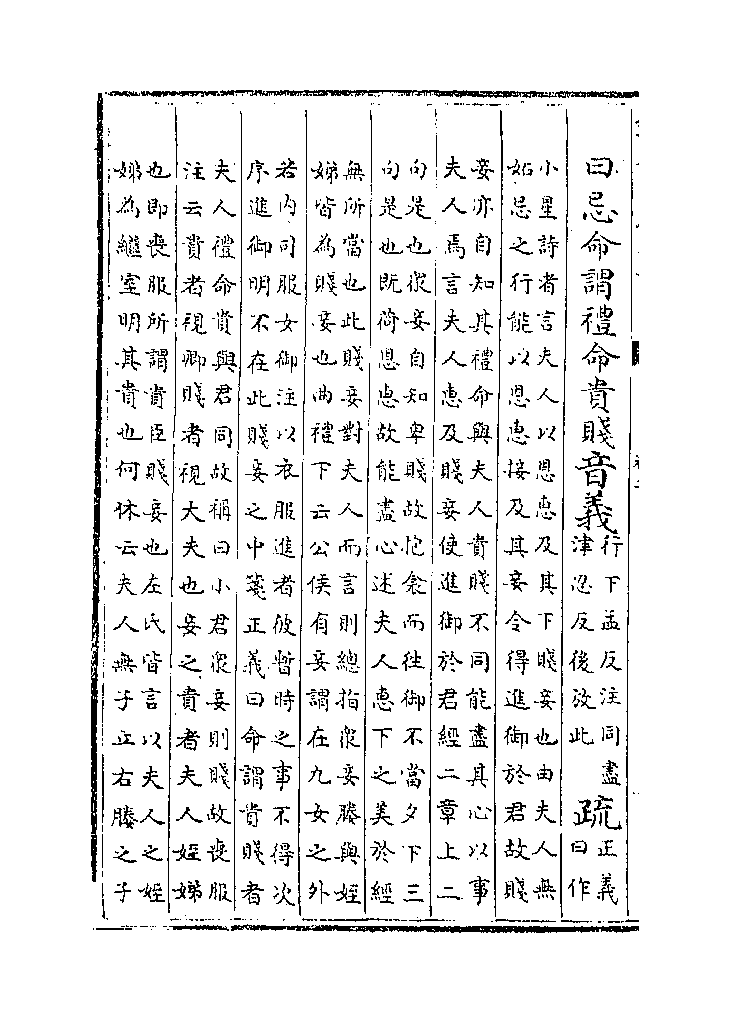 曰忌命謂禮命貴賤音義行下孟反注同盡
津忍反後放此疏正義
曰作
小星詩者言夫人以恩惠及其下賤妾也由夫人無
妬忌之行能以恩惠接及其妾令得進御於君故賤
妾亦自知其禮命與夫人貴賤不同能盡其心以事
夫人焉言夫人惠及賤妾使進御於君經二章上二
句是也衆妾自知卑賤故抱衾而往御不當夕下三
句是也既荷恩惠故能盡心述夫人惠下之美於經
無所當也此賤妾對夫人而言則總指衆妾媵與姪
娣皆為賤妾也曲禮下云公侯有妾謂在九女之外
若内司服女御注以衣服進者彼暫時之事不得次
序進御明不在此賤妾之中箋正義曰命謂貴賤者
夫人禮命貴與君同故稱曰小君衆妾則賤故喪服
注云貴者視卿賤者視大夫也妾之貴者夫人姪娣
也即喪服所謂貴臣賤妾也左氏皆言以夫人之姪
娣為繼室明其貴也何休云夫人無子立右媵之子